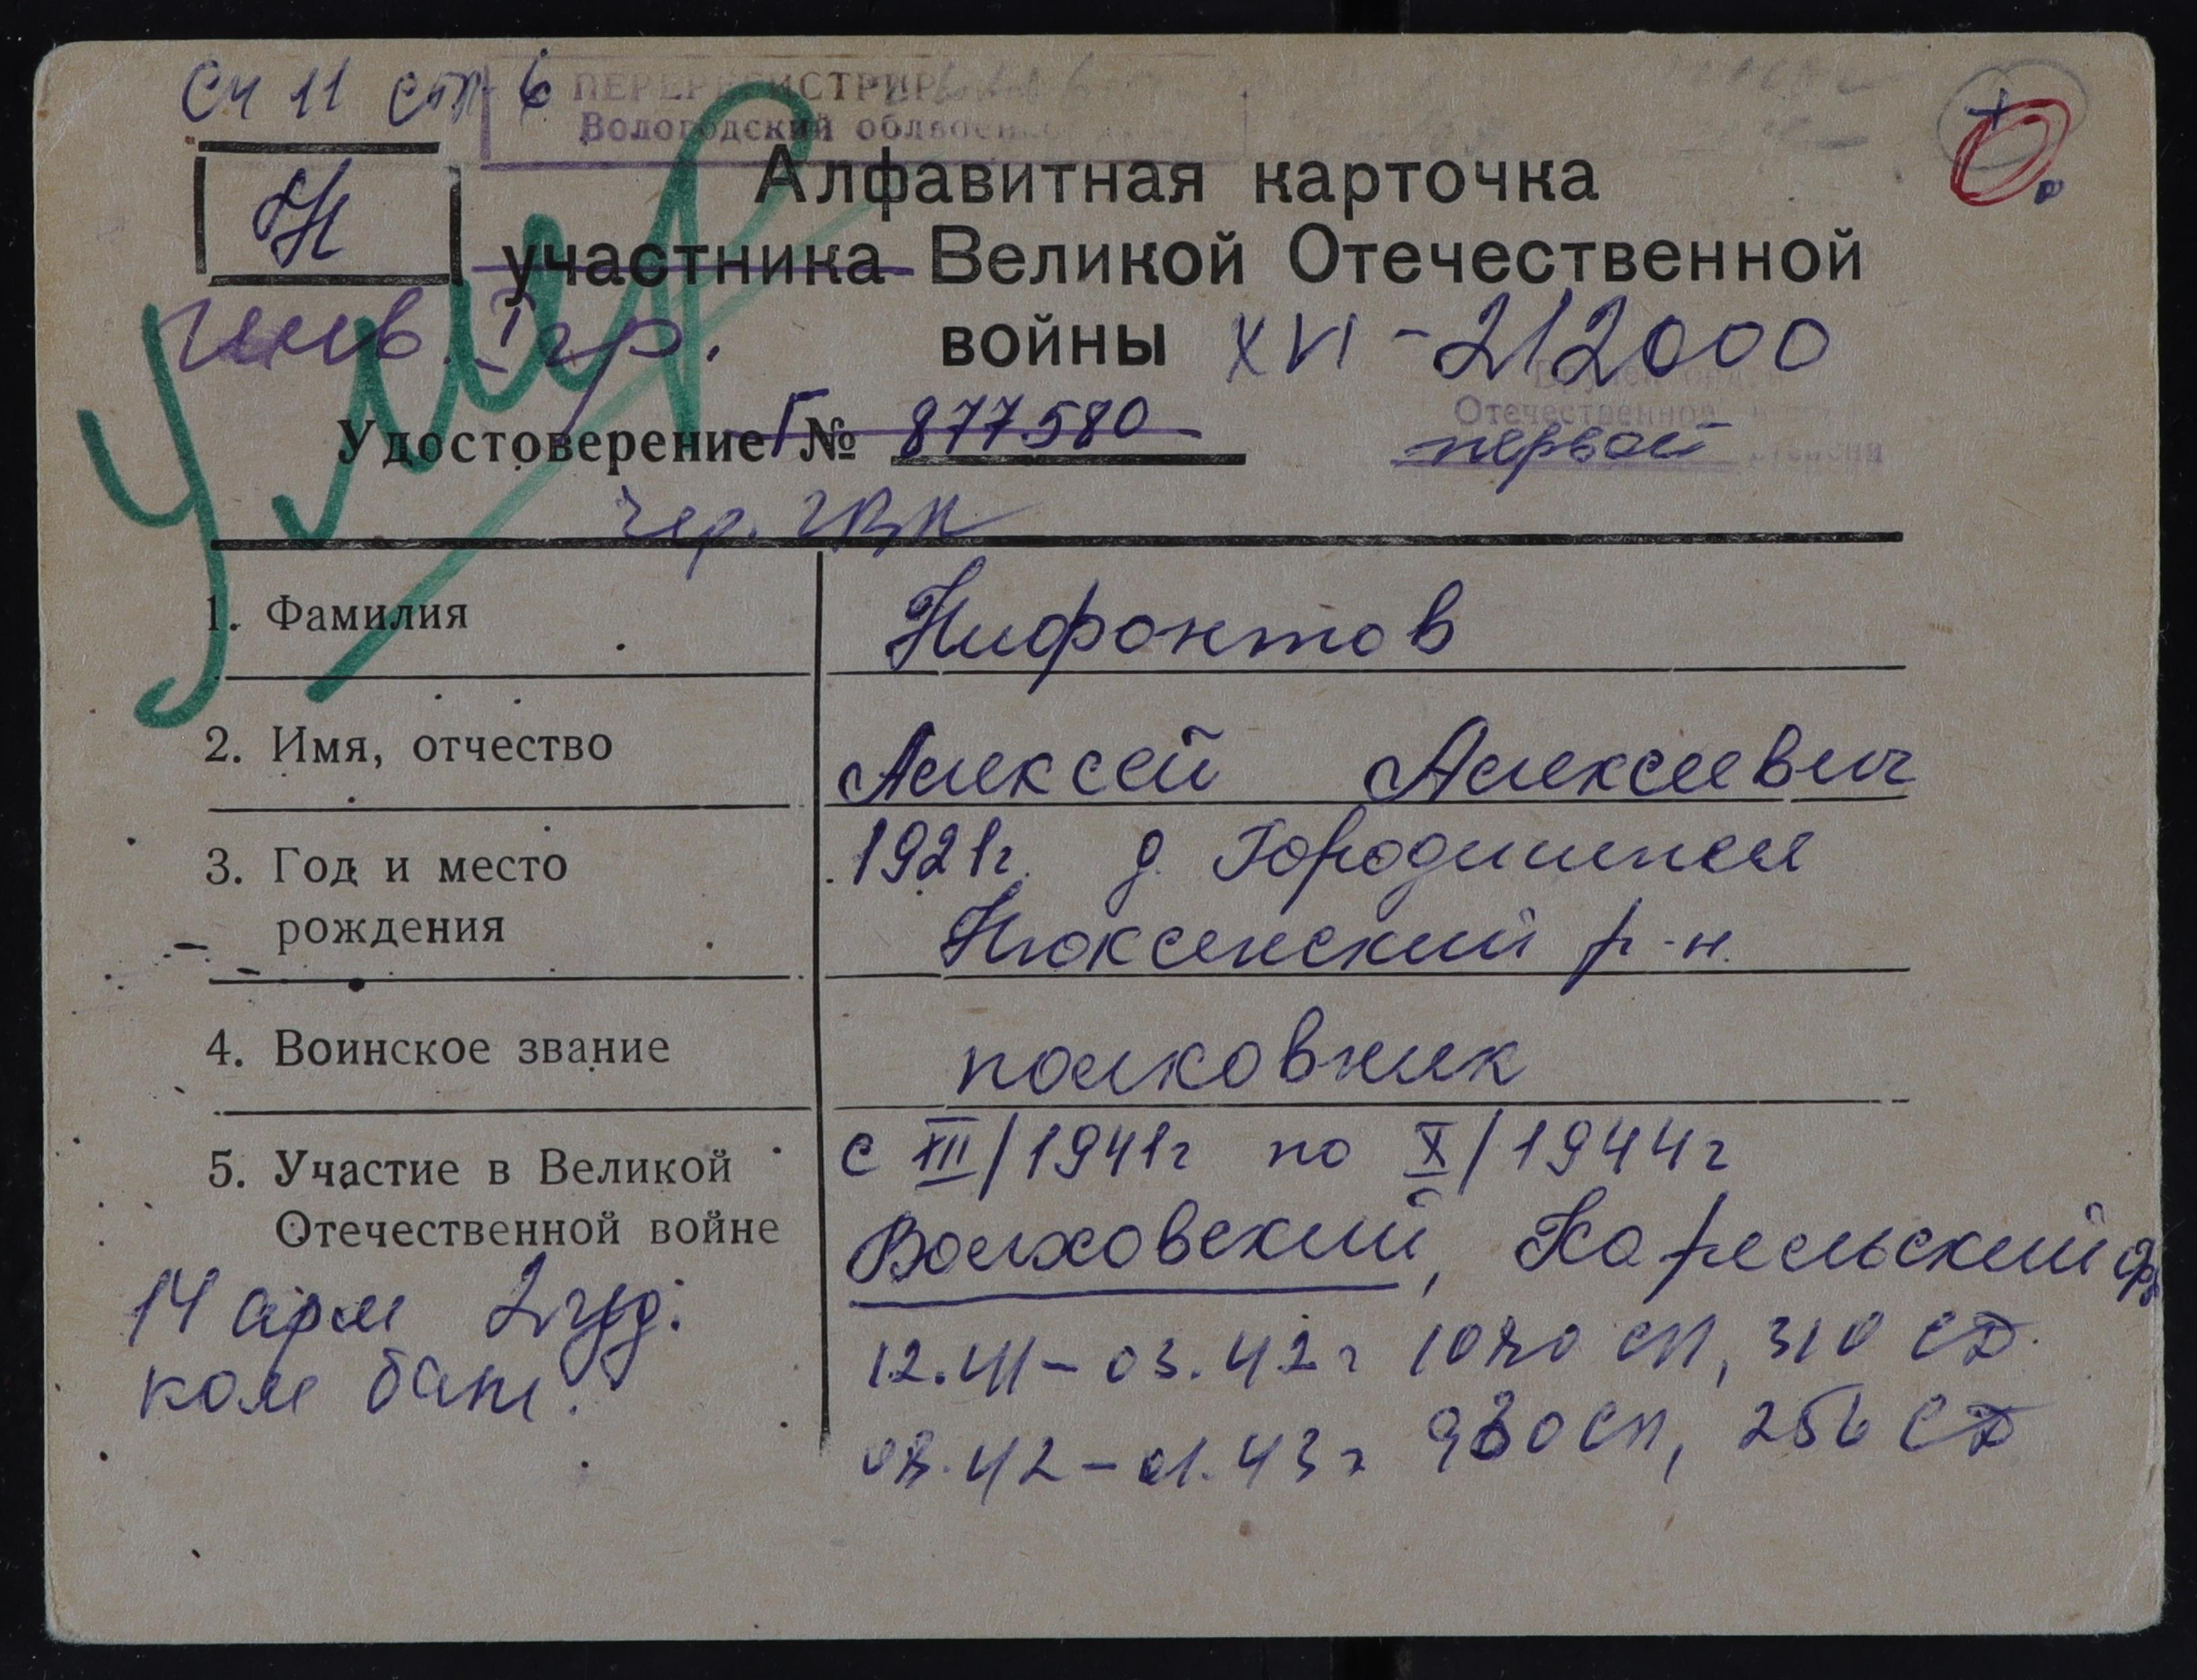 сч 11 стр 6
ПЕРЕРЕГИСТРИР
Вологодский облвоен
Алфавитная карточка
Н
участника Великой Отечественной
инв. I гр.
войны XVI - 212000
Умер
Отечественной
Удостоверение Г № 877580
первой степени
Чер. ГВК
1. Фамилия Нифонтов
2. Имя, отчество Алексей Алексеевич
3. Год и место 1921г. д. Городишня
рождения Нюксенский р-н.
4. Воинское звание полковник
5. Участие в Великой с XII/1941г по X/1944г
Отечественной войне Волховский, Карельский ф
14 арм 2 уд.
ком бат.
12.41-03.42г 1080 СП, 310 СД.
08.42-01.43г 930 СП, 256 СД